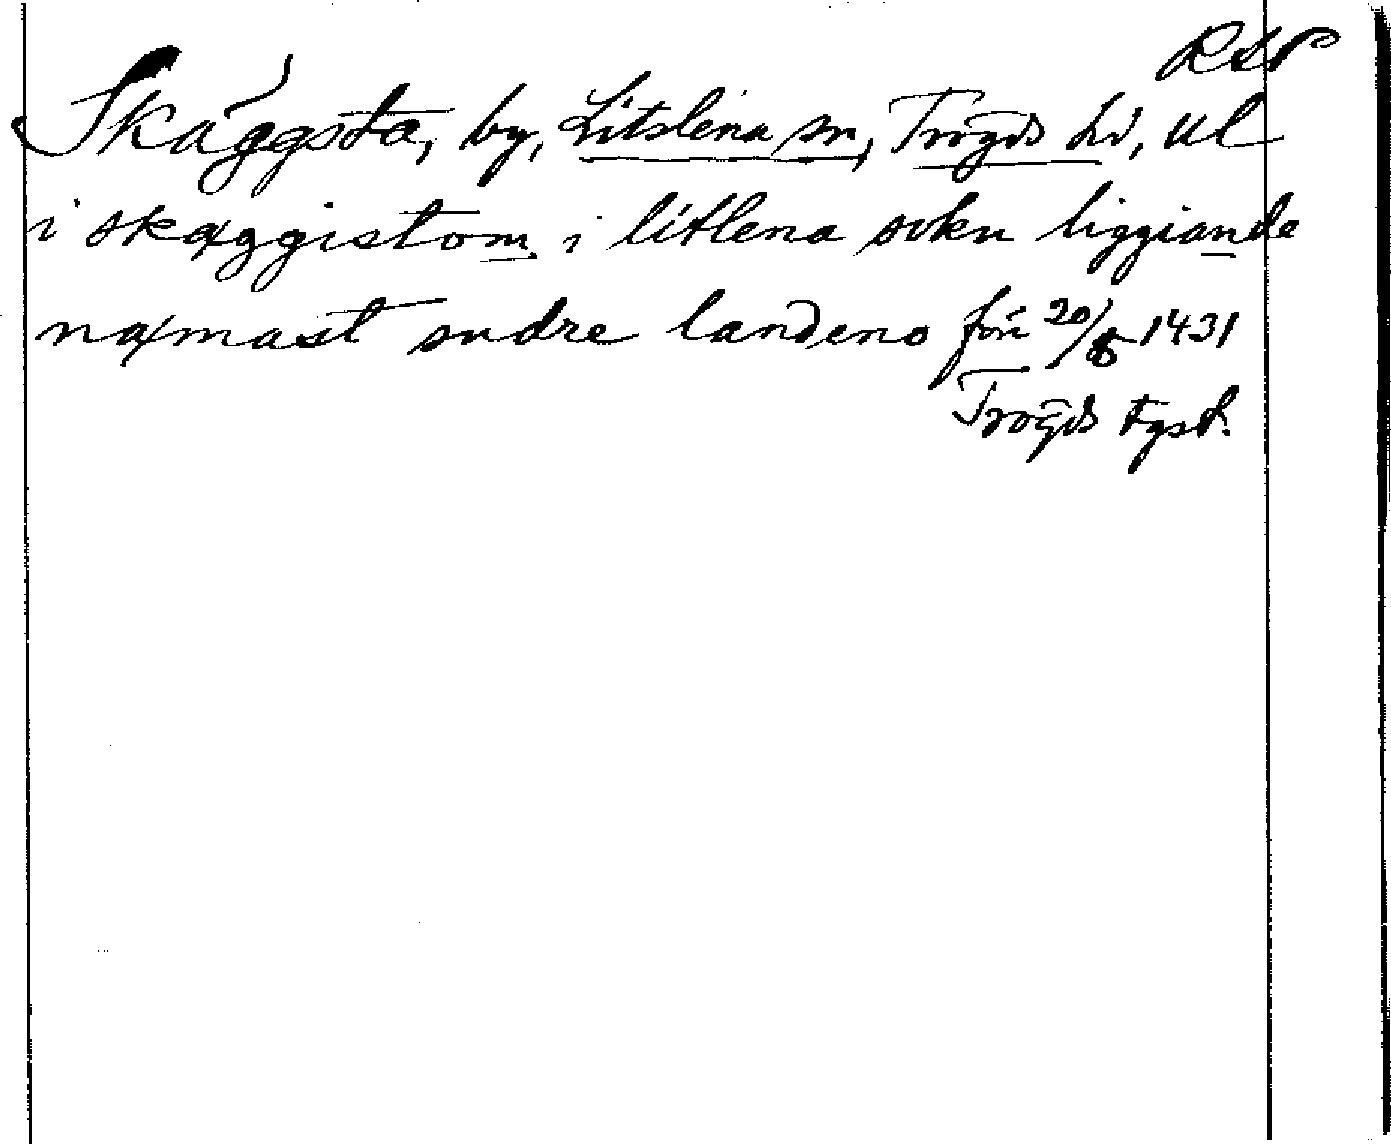 RSP
Skäggsta, by, Litslena sn, Trögds hd, Ul
i skæggistom i litlena sokn liggiande
næmast sudre landeno 20/8 1431
Trögds